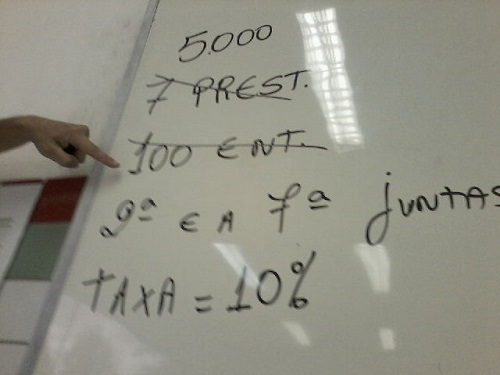 5.000
7 PREST.
100 ENT.
2ª E A 7ª JUNTAS
TAXA = 10%